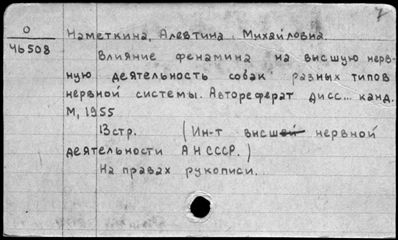 7
О
46508
Наметкина, Алевтина Михайловна.
Влияние фенамина на высшую нерв-
ную деятельность собак разных типов
нервной системы. Автореферат дисс... канд.
М, 1955
13стр. (Ин-т высшей нервной
деятельности АН СССР.)
На правах рукописи.